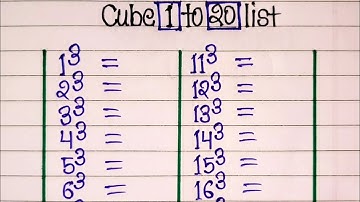 Cube 1 to 20 list
1³ = 11³ =
2³ = 12³ =
3³ = 13³ =
4³ = 14³ =
5³ = 15³ =
6³ = 16³ =